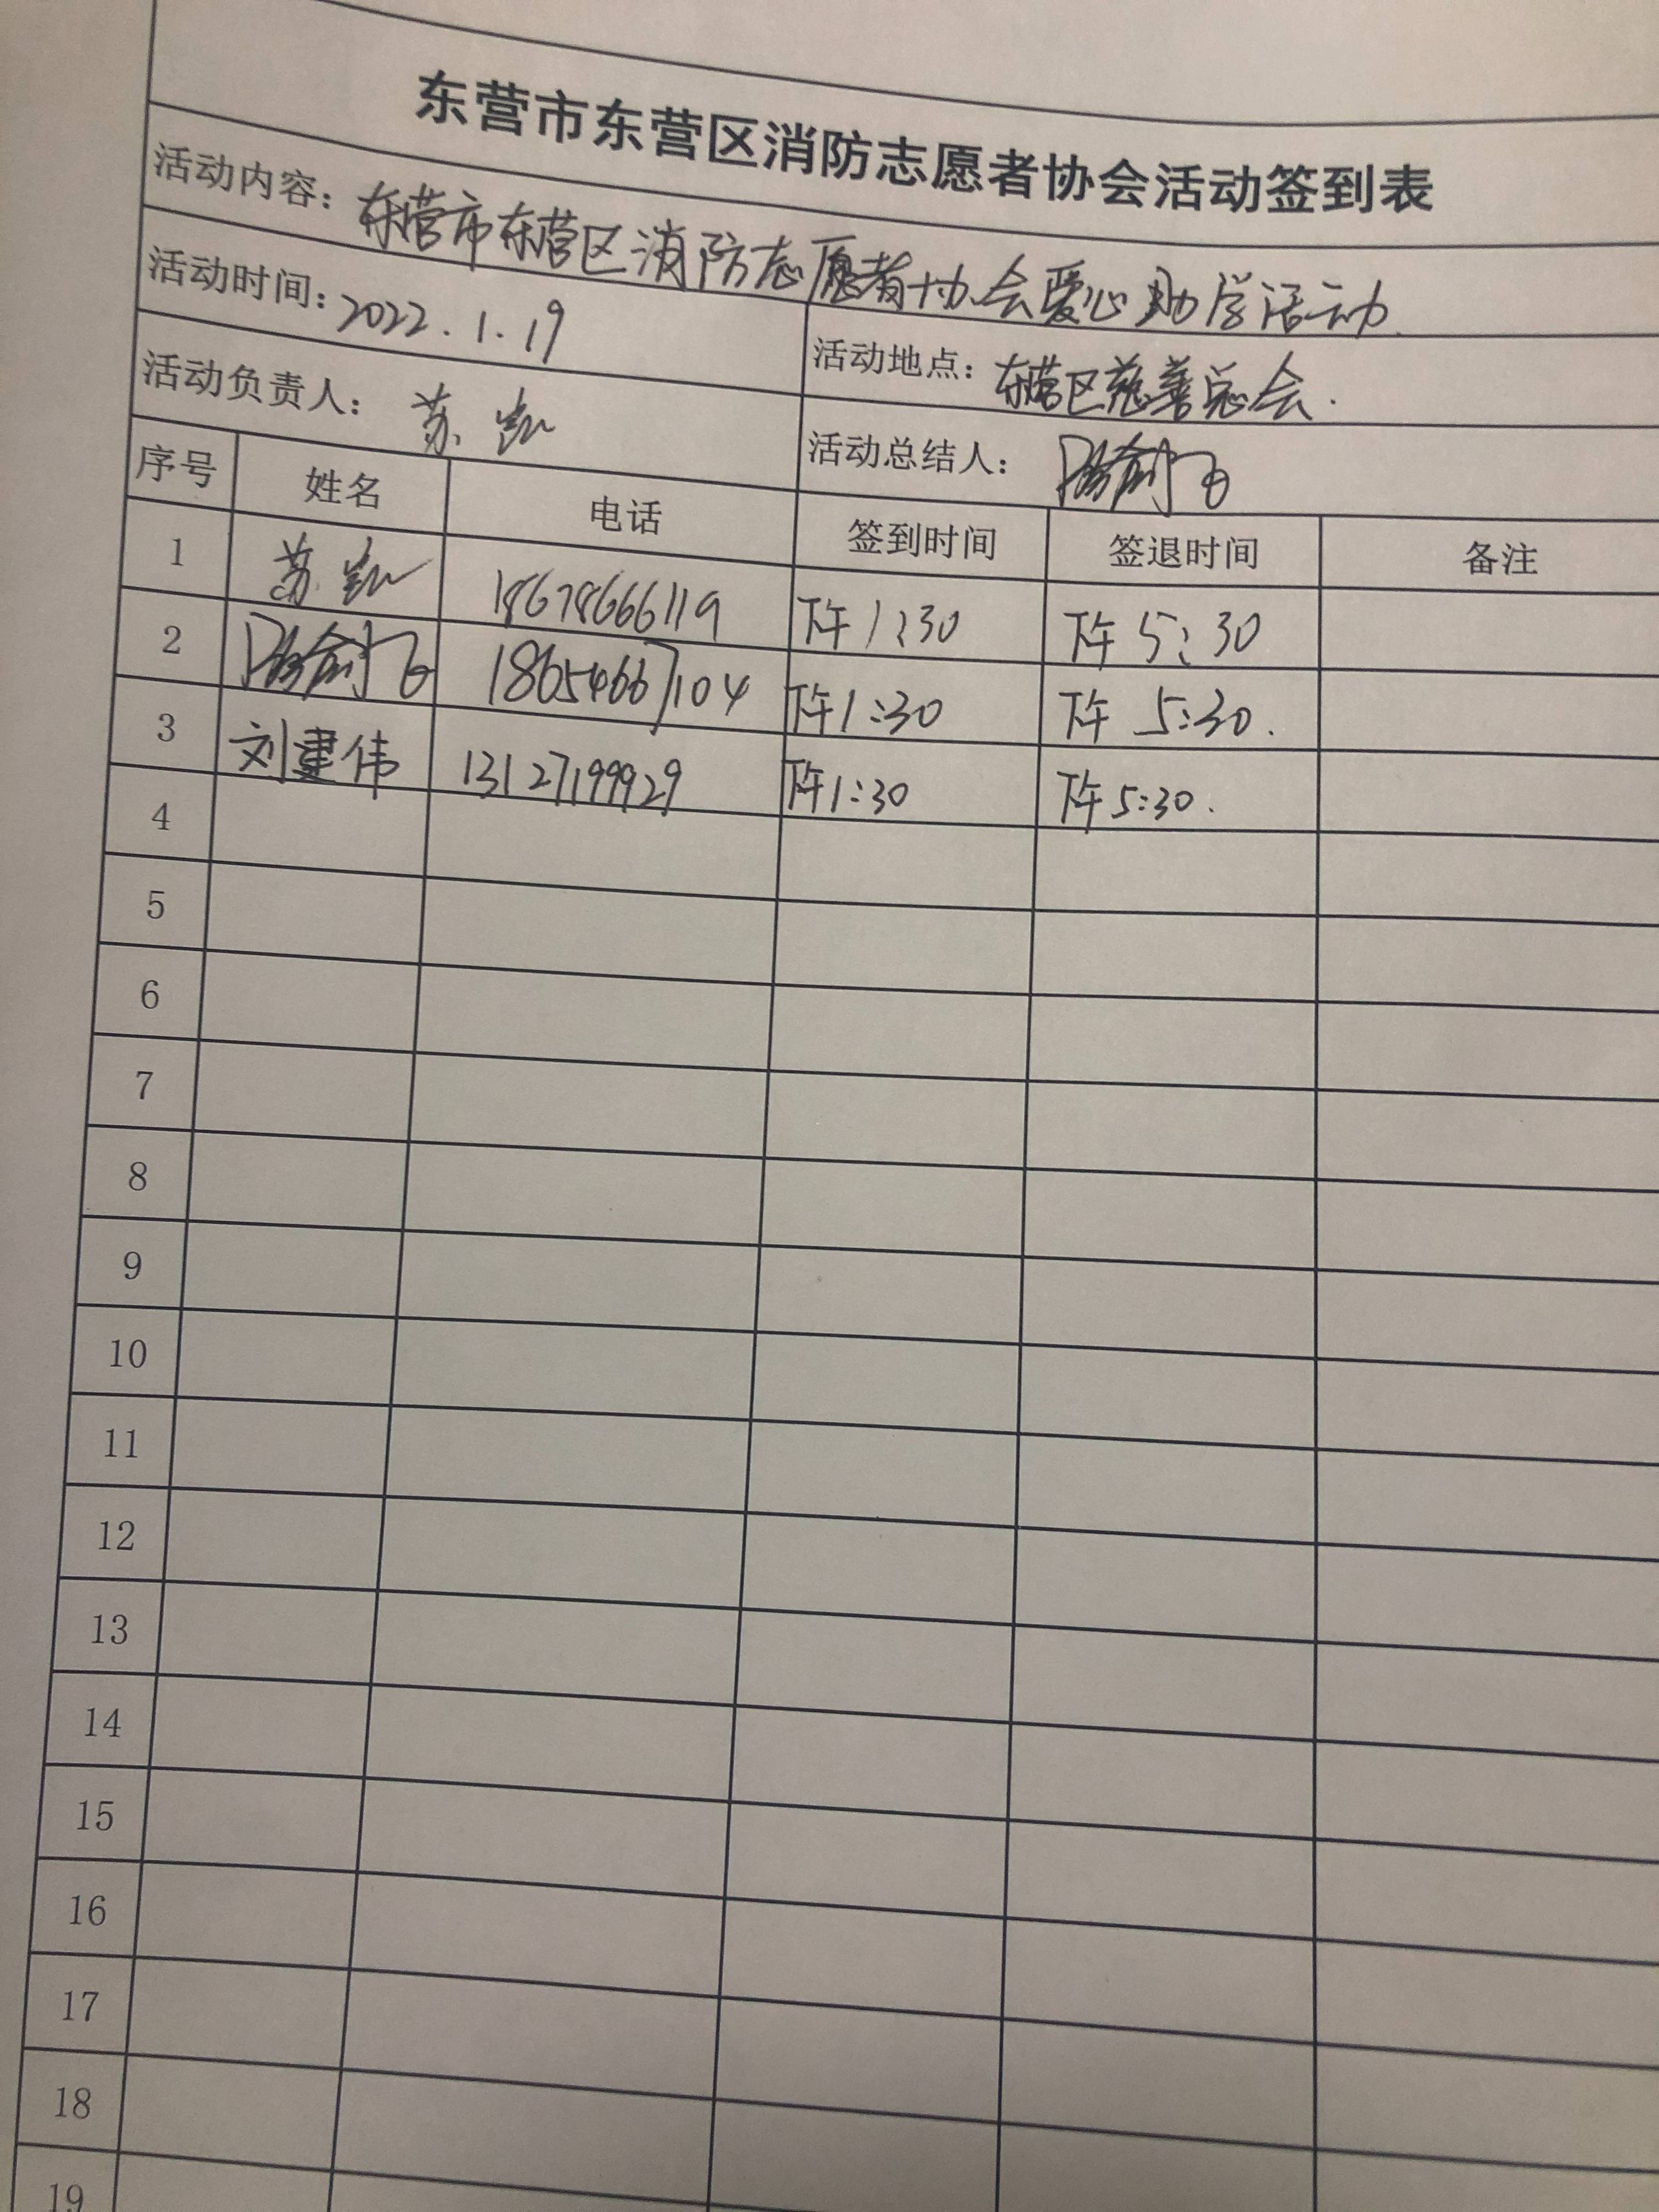 东营市东营区消防志愿者协会活动签到表
活动内容：东营市东营区消防志愿者协会爱心助学活动
活动时间：2022.1.19 活动地点：东营区慈善总会.
活动负责人：苏凯 活动总结人：
序号 姓名 电话 签到时间 签退时间 备注
1 苏凯 18678666119 下午1:30 下午5:30
2 18654667104 下午1:30 下午 5:30.
3 刘建伟 13127199929 下午1:30 下午5:30.
4
5
6
7
8
9
10
11
12
13
14
15
16
17
18
19